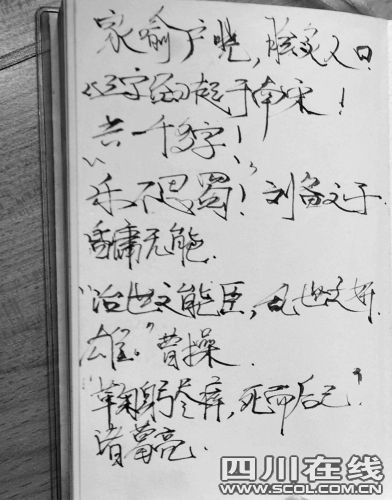 家喻户晓，脍炙人口.
《三字经》起于南宋！
共一千多字！
“乐不思蜀！”刘备之子
昏庸无能.
“治世之能臣，乱世之奸
雄.”曹操.
“鞠躬尽瘁，死而后已”
诸葛亮.
四川在线
WWW.SCOL.COM.CN